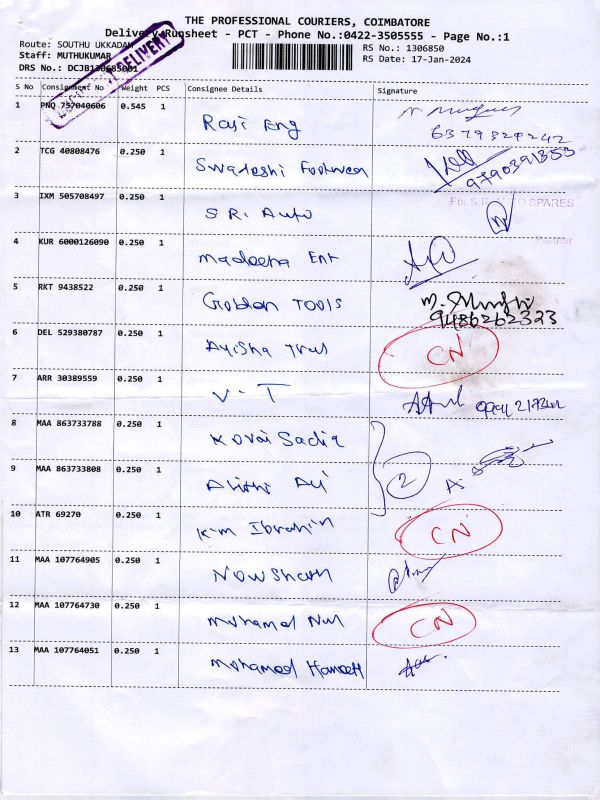 THE PROFESSIONAL COURIERS, COIMBATORE
Delivery Runsheet - PCT - Phone No.:0422-3505555 - Page No.:1
Route: SOUTHU UKKADAM
RS No.: 1306850
Staff: MUTHUKUMAR
RS Date: 17-Jan-2024
DRS No.: DCJB1306850
DELIVERY
S No Consignment No Weight PCS Consignee Details Signature
1 PNQ 757040606 0.545 1 Rasi Eng
6379329242
2 TCG 40808476 0.250 1 Swadeshi Footwear
9790391353
3 IXM 505708497 0.250 1 S.R. Auto
For S.R. AUTO SPARES
Partner
4 KUR 6000126090 0.250 1 Madeena Ent
5 RKT 9438522 0.250 1 Golden Tools
9486262323
6 DEL 529380787 0.250 1 Ayisha CN
7 ARR 30389559 0.250 1 V-T
8 MAA 863733788 0.250 1 Kovai Sadiq
2
9 MAA 863733808 0.250 1
10 ATR 69270 0.250 1 K.M Ibrahim CN
11 MAA 107764905 0.250 1 Nowshath
12 MAA 107764730 0.250 1 Mohamed CN
13 MAA 107764051 0.250 1 Mohamed